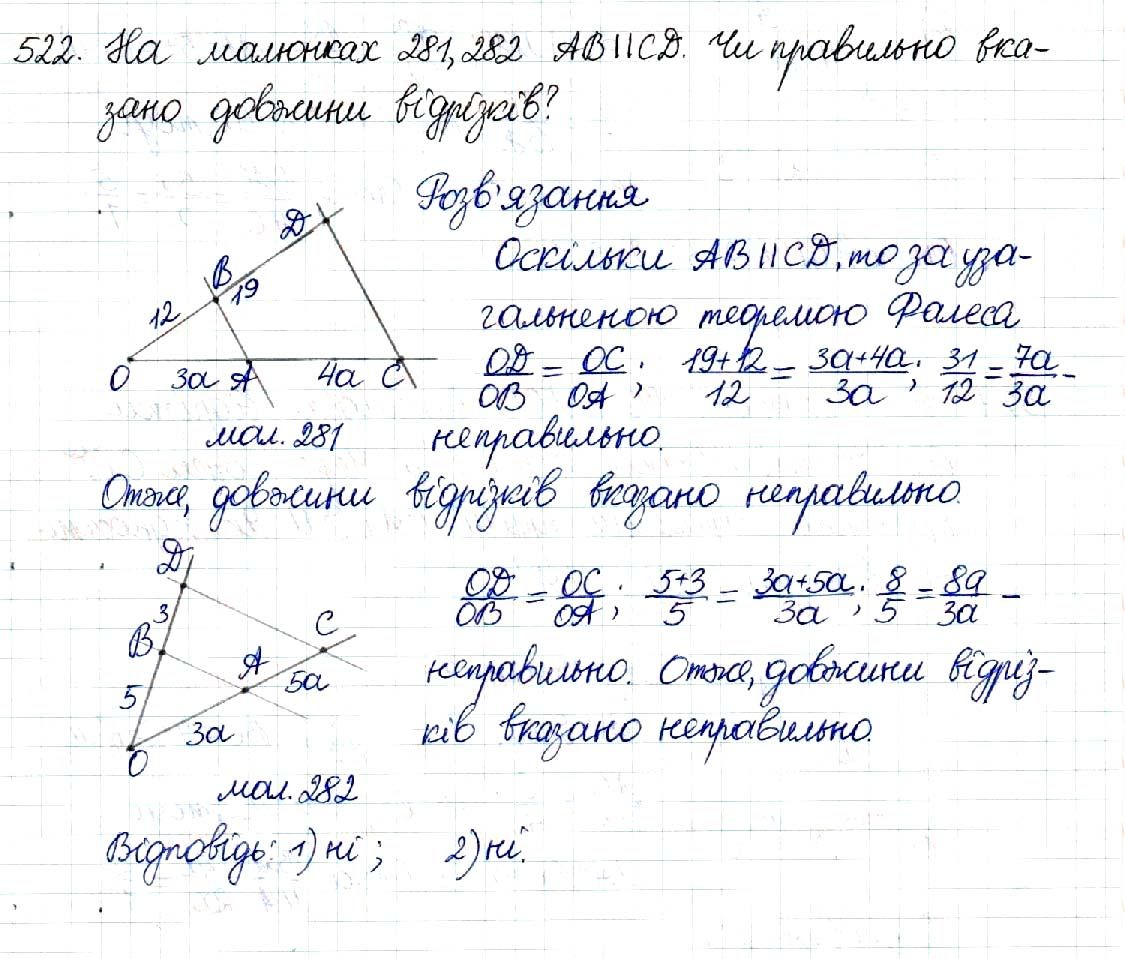 522. На малюнках 281, 282 AB||CD. Чи правильно вка-
зано довжини відрізків?
Розв'язання
Оскільки AB||CD, то за уза-
гальненою теоремою Фалеса
OD/OB = OC/OA; 19+12/12 = 3a+4a/3a; 31/12 = 7a/3a –
неправильно.
D
B
12
19
O 3a A 4a C
мал. 281
Отже, довжини відрізків вказано неправильно.
OD/OB = OC/OA; 5+3/5 = 3a+5a/3a; 8/5 = 8a/3a –
неправильно. Отже, довжини відріз-
ків вказано неправильно.
D
3
B
C
A
5a
5
3a
O
мал. 282
Відповідь: 1) ні; 2) ні.